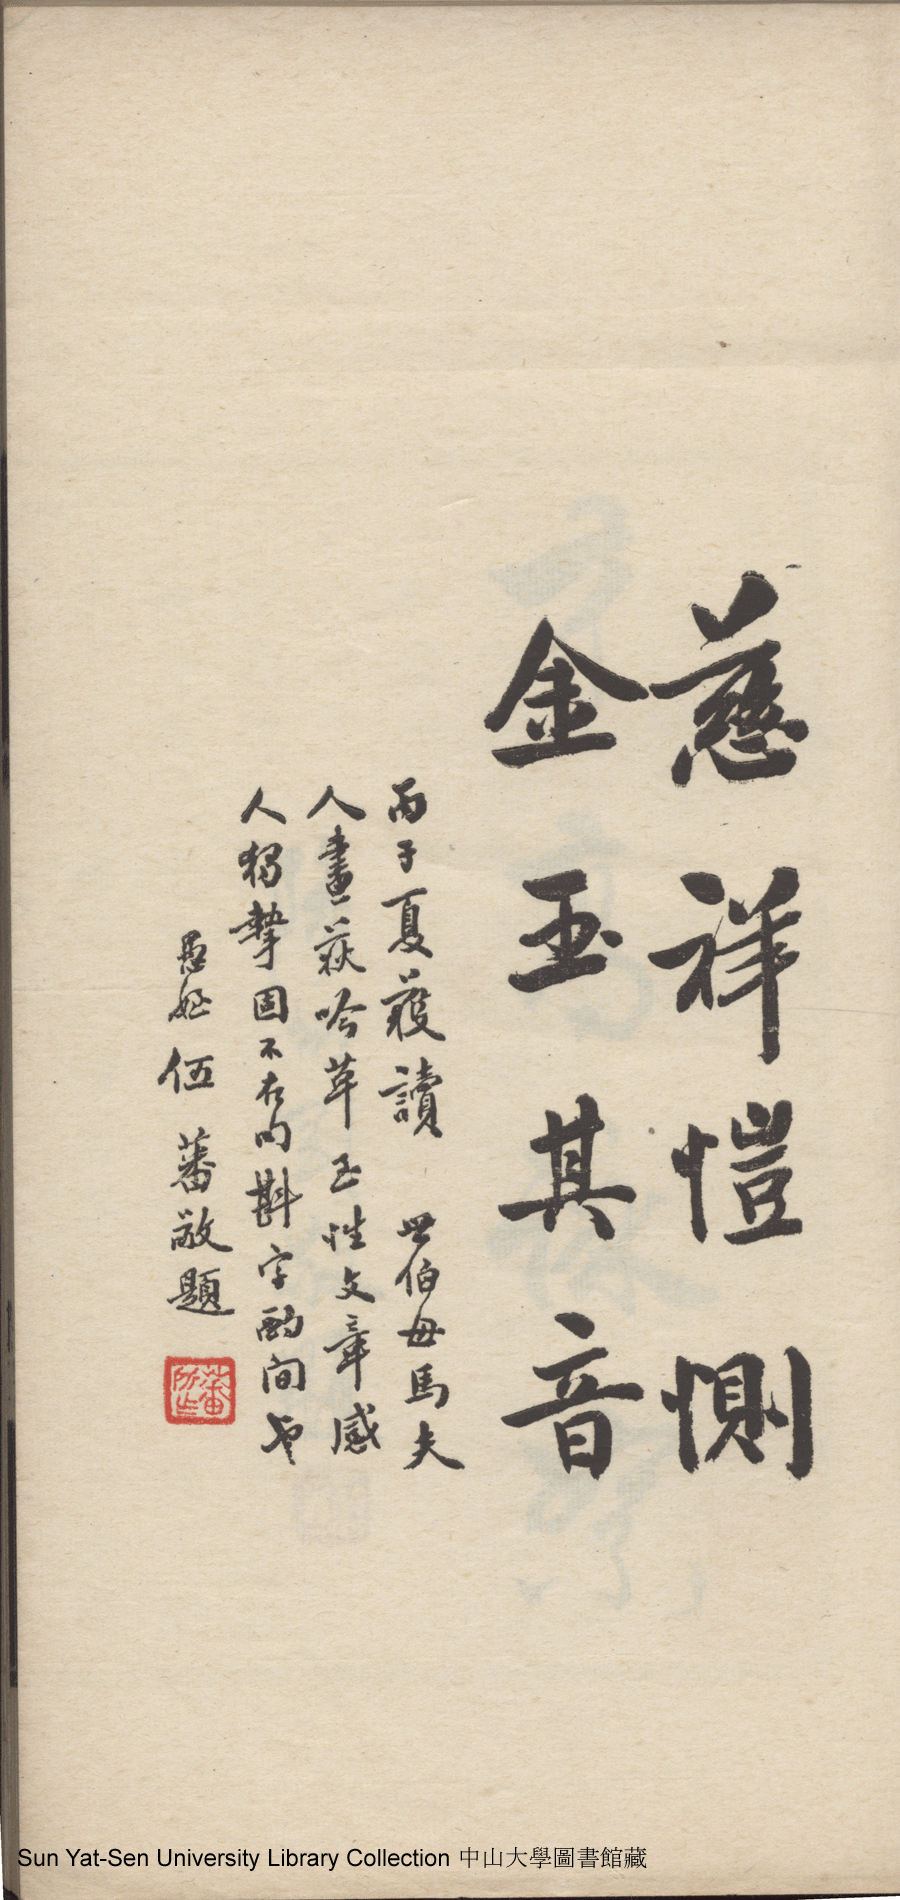 慈祥愷惻
金玉其音
丙子夏獲讀 世伯母馬夫
人畫荻吟草至性文章感
人獨摯固不在內斟字酌间也
愚姪伍蕃敬題
Sun Yat-Sen University Library Collection 中山大學圖書館藏